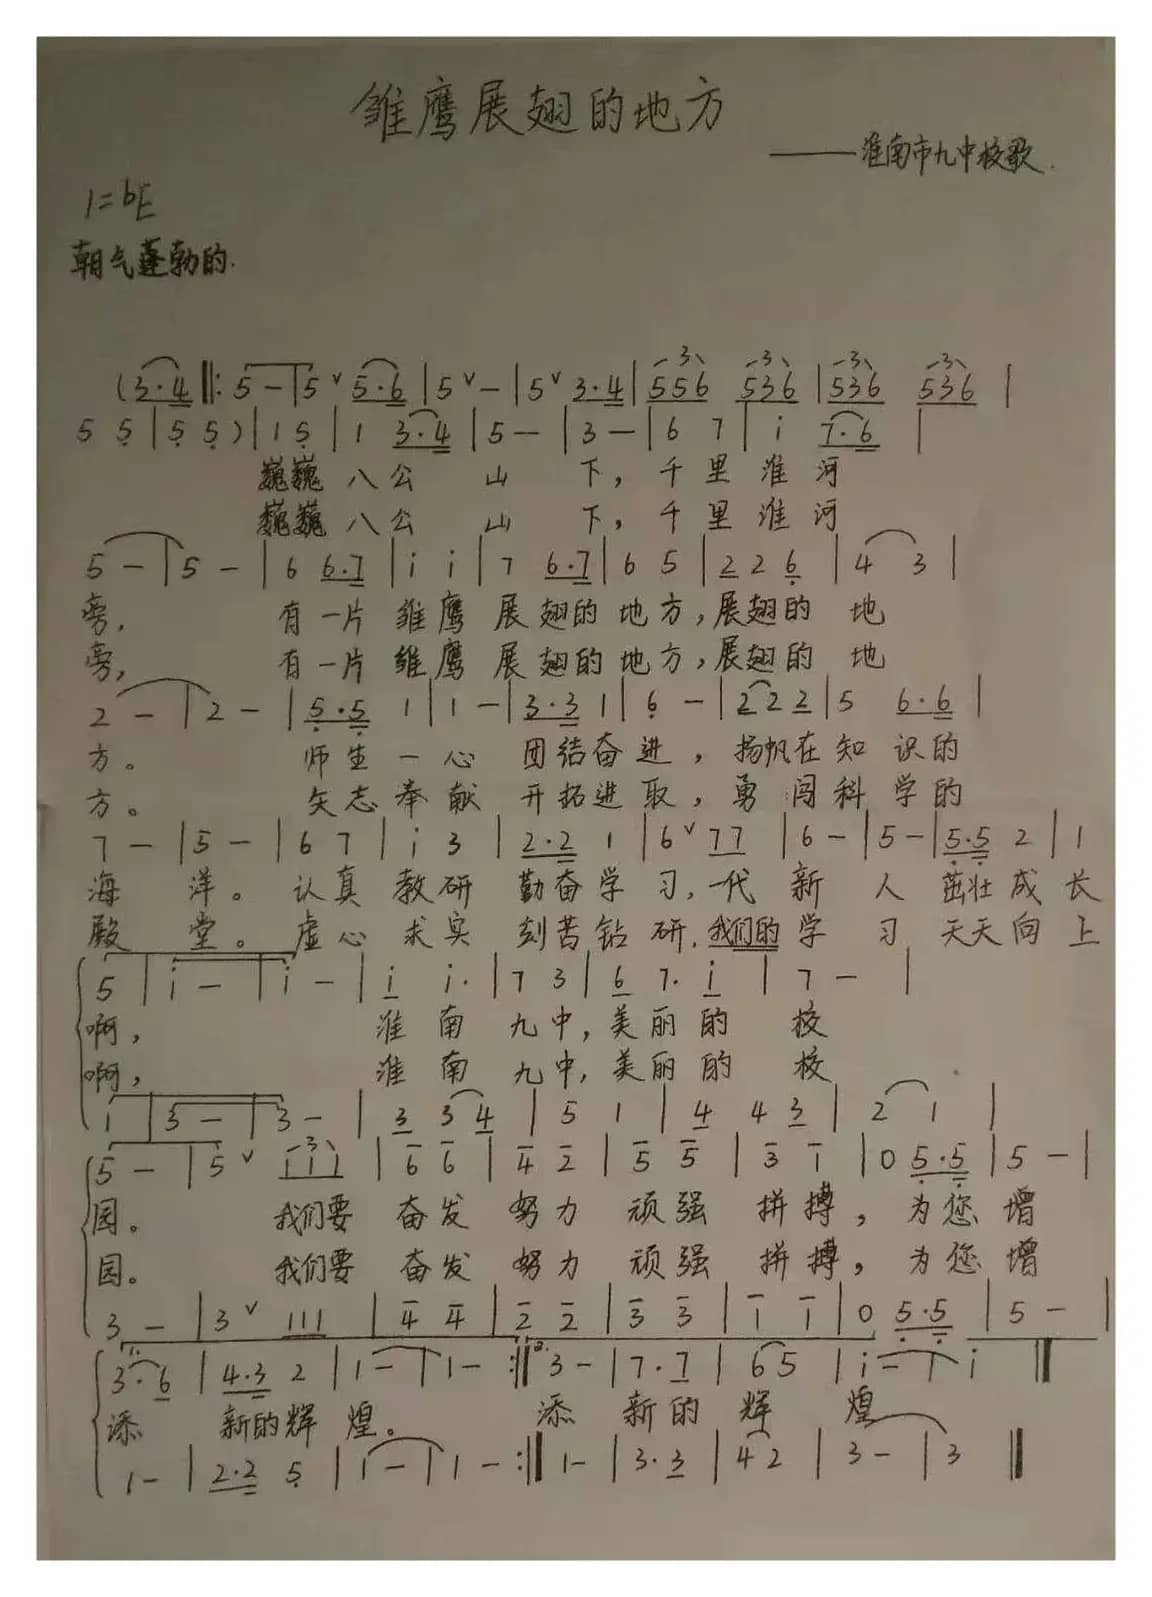 雏鹰展翅的地方
——淮南市九中校歌.
1=bE
朝气蓬勃的.
(3·4 ‖: 5 - | 5 ˅ 5·6 | 5 ˅ - | 5 ˅ 3·4 | 556 536 | 536 536 |
5 5 | 5 5 ) | 1 5 | 1 3·4 | 5 - | 3 - | 6 7 | i 7·6 |
巍巍八公 山 下, 千里淮河
巍巍八公 山 下, 千里淮河
5 - | 5 - | 6 6·7 | i i | 7 6·7 | 6 5 | 2 2 6 | 4 3 |
旁, 有一片雏鹰展翅的地方,展翅的 地
旁, 有一片雏鹰展翅的地方,展翅的 地
2 - | 2 - | 5·5 1 | 1 - | 3·3 1 | 6 - | 2 2 2 | 5 6·6 |
方。 师生一心 团结奋进, 扬帆在知识的
方。 矢志奉献 开拓进取, 勇闯科学的
7 - | 5 - | 6 7 | i 3 | 2·2 1 | 6 ˅ 77 | 6 - | 5 - | 5·5 2 | 1
海 洋。 认真教研 勤奋学习,一代新 人 茁壮成长
殿 堂。 虚心求实 刻苦钻研,我们的学 习 天天向上
5 | i - | i - | i i· | 7 3 | 6 7· i | 7 - |
啊, 淮南九中,美丽的 校
啊, 淮南九中,美丽的 校
1 | 3 - | 3 - | 3 3 4 | 5 1 | 4 4 3 | 2 1 |
5 - | 5 ˅ 111 | 6 6 | 4 2 | 5 5 | 3 1 | 0 5·5 | 5 - |
园。 我们要 奋发 努力 顽强 拼搏, 为您增
园。 我们要 奋发 努力 顽强 拼搏, 为您增
3 - | 3 ˅ 111 | 4 4 | 2 2 | 3 3 | 1 1 | 0 5·5 | 5 - |
3·6 | 4·3 2 | 1 - | 1 - :‖ 3 - | 7·7 | 6 5 | i - | i ‖
添 新的辉 煌。 添 新的 辉 煌
1 - | 2·2 5 | 1 - | 1 - :‖ 1 - | 3·3 | 4 2 | 3 - | 3 ‖